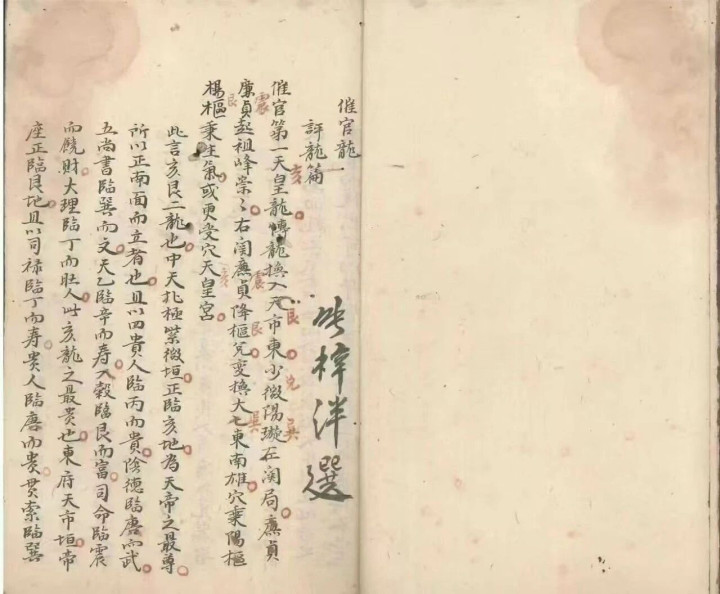 催官龍
評龍篇一
亥
梓泮選
催官第一天皇龍博龍換入天市東少微陽璇左関局廉貞
震 艮 兌 巽
廉貞起祖峰崇々右関廉貞降樞兌变換大七東南雄穴乗陽樞
艮 亥 震 艮 巽
楊樞乗生氣或更受穴天皇宮
此言亥艮二龍也中天北極紫微垣正臨亥地為天帝之最尊
所以正南面而立者也且以四貴人臨丙而貴陰德臨庚而武
五尚書臨巽而文天乙臨辛而寿入穀臨艮而富司命臨震
而饒財大理臨丁而旺人此亥龍之最贵也東府天市垣帝
座正臨艮地且以司禄臨丁而寿贵人臨庚而贵贯索臨巽